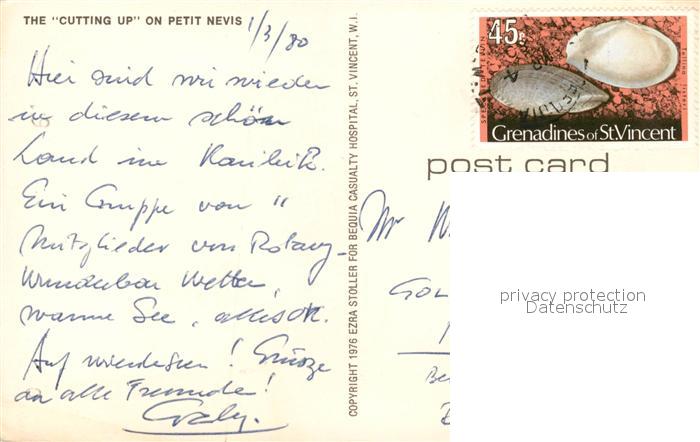 THE "CUTTING UP" ON PETIT NEVIS
1/3/80
Hier sind wir wieder
in diesem schön
Land im Karibik.
Ein Gruppe von 11
Mitglieder von Rotary
Wunderbar Wetter,
warme See, alles OK.
Auf wiedersehen! Grüsze
an alle Freunde!
COPYRIGHT 1976 EZRA STOLLER FOR BEQUIA CASUALTY HOSPITAL, ST. VINCENT, W.I.
45c
Grenadines of St.Vincent
post card
Mr
GOL
privacy protection
Datenschutz